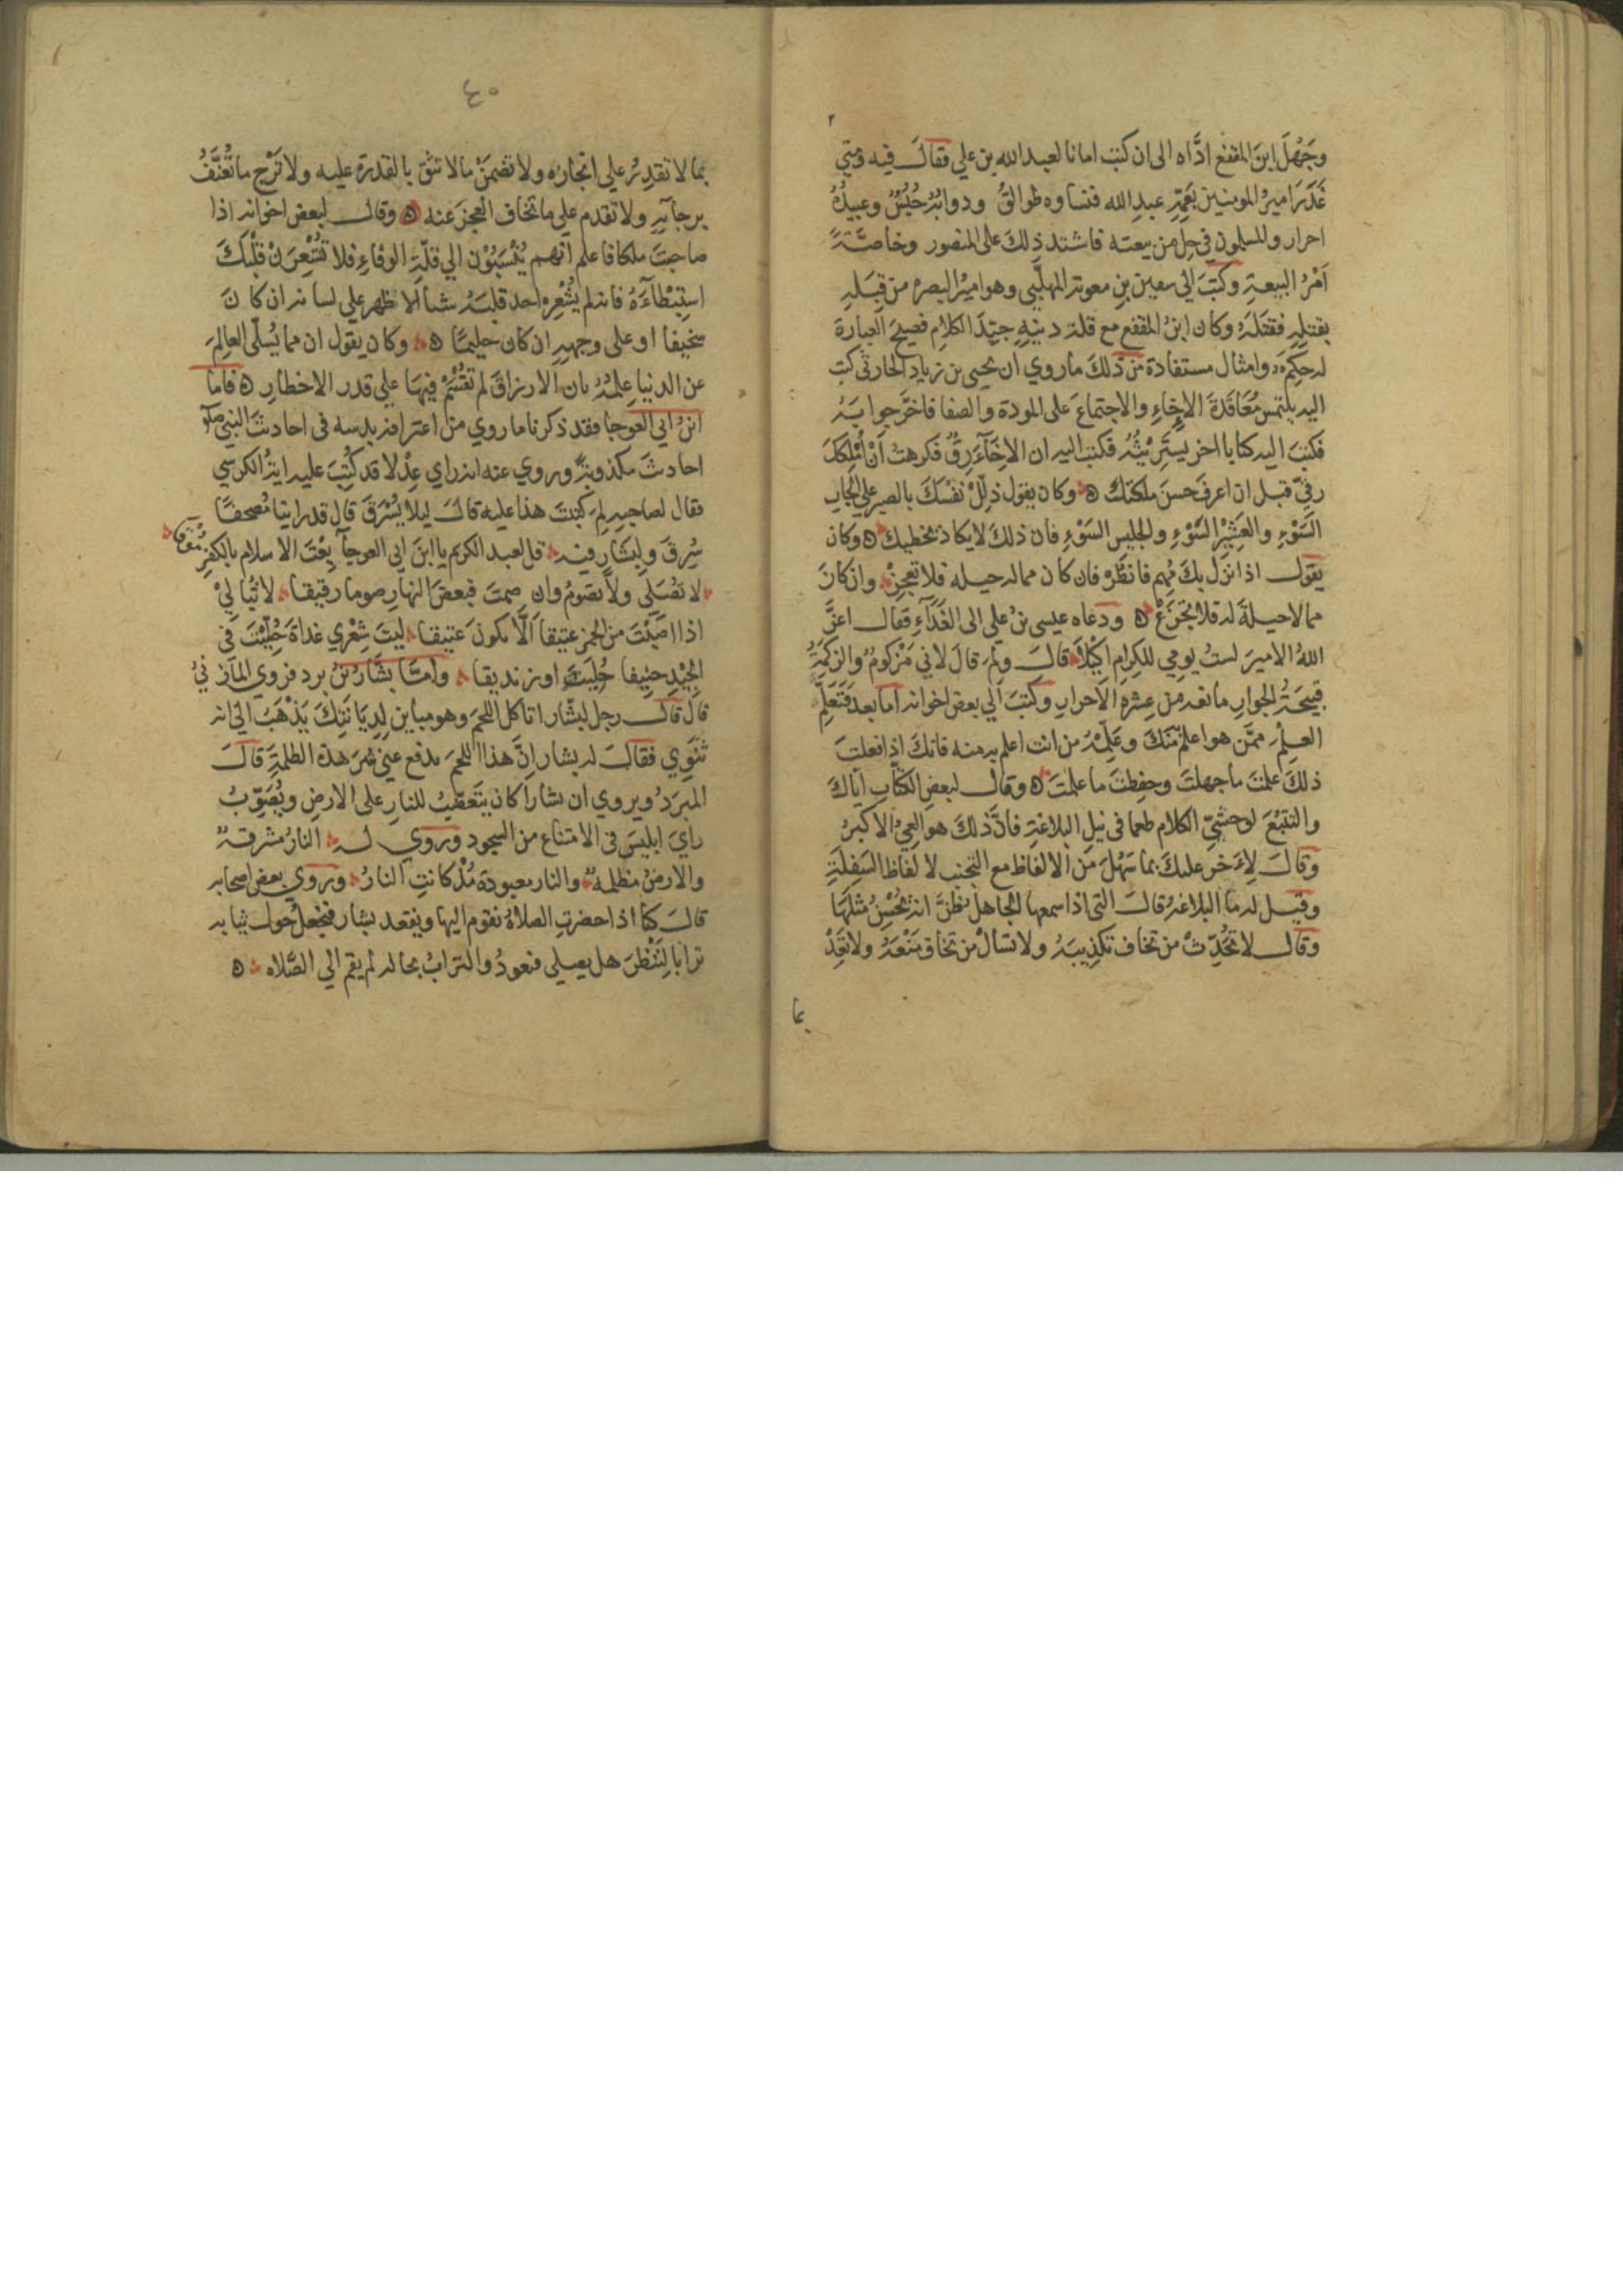 وجَهْلَ ابنَ المقفع ادَّاه الى ان كتب امانا لعبد الله بن علي فقال فيه ومتي
غَدَرَ اميرُ المومنين بعَمّهِ عبد الله فنساوه طوالقُ ودوابُّهُ حُبُسٌ وعبيدُهُ
احرار والمسلمون في حِلٍ من بيعته فاشتد ذلك على المنصور وخاصَّةً
اَمْرُ البيعةِ وكتبَ الي سفين بنِ معوية المهلّبي وهو اميرُ البصره من قِبَلِهِ
بقتلِهِ فقتلَهُ وكان ابنُ المقفع مع قلة دينِهِ جيّدَ الكلامِ فصيحَ العبارة
له حِكَمٌ وامثال مستفادة من ذلكَ ما روي ان يحيى بن زيادٍ الحارثي كتب
اليه يلتمس مُعَاقَدةَ الاِخاءِ والاجتماعَ على المودة والصفا فاخَّر جوابَهُ
فكتبَ اليه كتابا اخر يسترِيثُهُ فكتب اليه ان الاِخَآءَ رِقٌ فكرهتُ اَنْ اُمَلِّكَكَ
رِقّي قبل ان اعرفَ حسنَ ملكتك ه وكان يقول ذلِّلْ نفْسَكَ بالصبر على الجارِ
السَوْءِ والعَشِيْرِ السَّوْءِ والجليس السَوْءِ فان ذلكَ لا يكاد يخطيك ه وكان
يقول اذا نزل بكَ مُهِم فانظُرْ فان كان مما له حيله فلا تعجِزْ وان كانَ
مما لا حيلةَ له فلا تجزعْ ه ودعاه عيسى بنُ علي الى الغَدَآءِ فقال اعزَّ
اللهُ الاميرَ لستُ يومي للكِرامِ اكِيْلاً قالَ ولِمَ قالَ لاني مَزْكومٌ والزكمَةُ
قبيحةُ الجوارِ مانعة من عِشرةِ الاحرارِ وكتبَ الي بعض اخوانه اما بعد فتَعَلَّم
العلمَ ممَّن هو اعلمُ منكَ وعَلِّمْهُ من انت اعلم به منه فانكَ اذا فعلتَ
ذلكَ علمتَ ما جهلتَ وحفِظتَ ما علمتَ ه وقال لبعض الكتّاب اياكَ
والتتبُّعَ لوحشيِّ الكلام طمعا في نيلِ البلاغةِ فانَّ ذلكَ هو العِيُّ الاكبرُ
وقالَ لِآخَر عليكَ بما سَهُلَ من الالفاظِ مع التجنب لالفاظ السَفِلَةِ
وقيل له ما البلاغةُ قالَ التي اذا سمعها الجاهلُ ظنَّ انه يُحْسِنُ مثلَهَا
وقال لا تُحَدِّثْ من تخاف تكذيبَهُ ولا تسالْ من تخاف مَنْعَهُ ولا تَعِدْ
بما
٤٥
بما لا تقدِرُ علي انجازه ولا تضمَنْ ما لا تثق بالقدرة عليه ولا تَرْج ما تُعَنَّفُ
برجآيهِ ولا تقدم علي ما تخاف العجز عنه ه وقال لبعض اخوانه اذا
صاحبتَ ملكا فاعلم انهم يُنْسَبُوْن الي قلَّةِ الوفاءِ فلا تُشْعِرَنْ قلْبَكَ
استِبْطآءَهُ فانه لم يُشْعِرْه احد قلبَهُ شيا الا ظهر علي لسانه ان كانَ
سخيفا او على وجهِهِ ان كان حليمًا ه وكان يقول ان مما يُسلّى العالِمَ
عن الدنيا علمُهُ بان الارزاقَ لم تقْسَمْ فيها علي قدر الاخطارِ ه فاما
ابنُ ابي العَوجا فقد ذكرنا ما روي من اعترافه بدسه في احاديثَ النبي
احاديثَ مكذوبةً وروي عنه انه راي عِدْلا قد كُتِبَ عليه ايةُ الكرسي
فقال لصاحبه لِمَ كتبتَ هذا عليه قالَ ليلا يُسْرَقَ قال قد راينا مُصحفًا
سُرِقَ ولِبَشّارٍ فيه قل لعبد الكريم يا ابنَ ابي العوجآ بِعْتَ الاسلام بالكفرِ مُوْقا
لا تصَلي ولا تصومُ وان صمتَ فبعضَ النهارِ صوما رقيقا لا تُبالِيْ
اذا اصَبْتَ من الخمرِ عتيقاً اَلّا تكونَ عتيقا ليتَ شِعْري غداةَ حُلِّيْتَ في
الجِيْدِ حنيفا حُلِيتَ او زنديقا وامَّا بشّارُ بنُ برد فروي المازنيُ
قال قال رجل لبشّارٍ اتاكل اللحمَ وهو مباين لِدِيَانَتِكَ يَذْهَبُ الى انه
ثَنَوِي فقالَ له بشار اِنَّ هذا اللحمَ يدفع عني شرَ هذه الظلمةِ قالَ
المبرّدُ ويروي ان بشارا كان يتعصّبُ للنارِ على الارضِ ويُصَوِّبُ
رايَ ابليسَ في الامتناع من السجود وروي لهِ النارُ مشرقةٌ
والارضُ مظلمةٌ والنار معبودة مُذْ كانتِ النارُ وروي بعض اصحابه
قالَ كنا اذا حضرتِ الصلاةُ نقوم اليها ويقعد بشار فنجعل حول ثيابه
ترابا لِنَنْظُرَ هل يصلي فنعودُ والترابُ بحاله لم يقم الي الصَّلاه ه